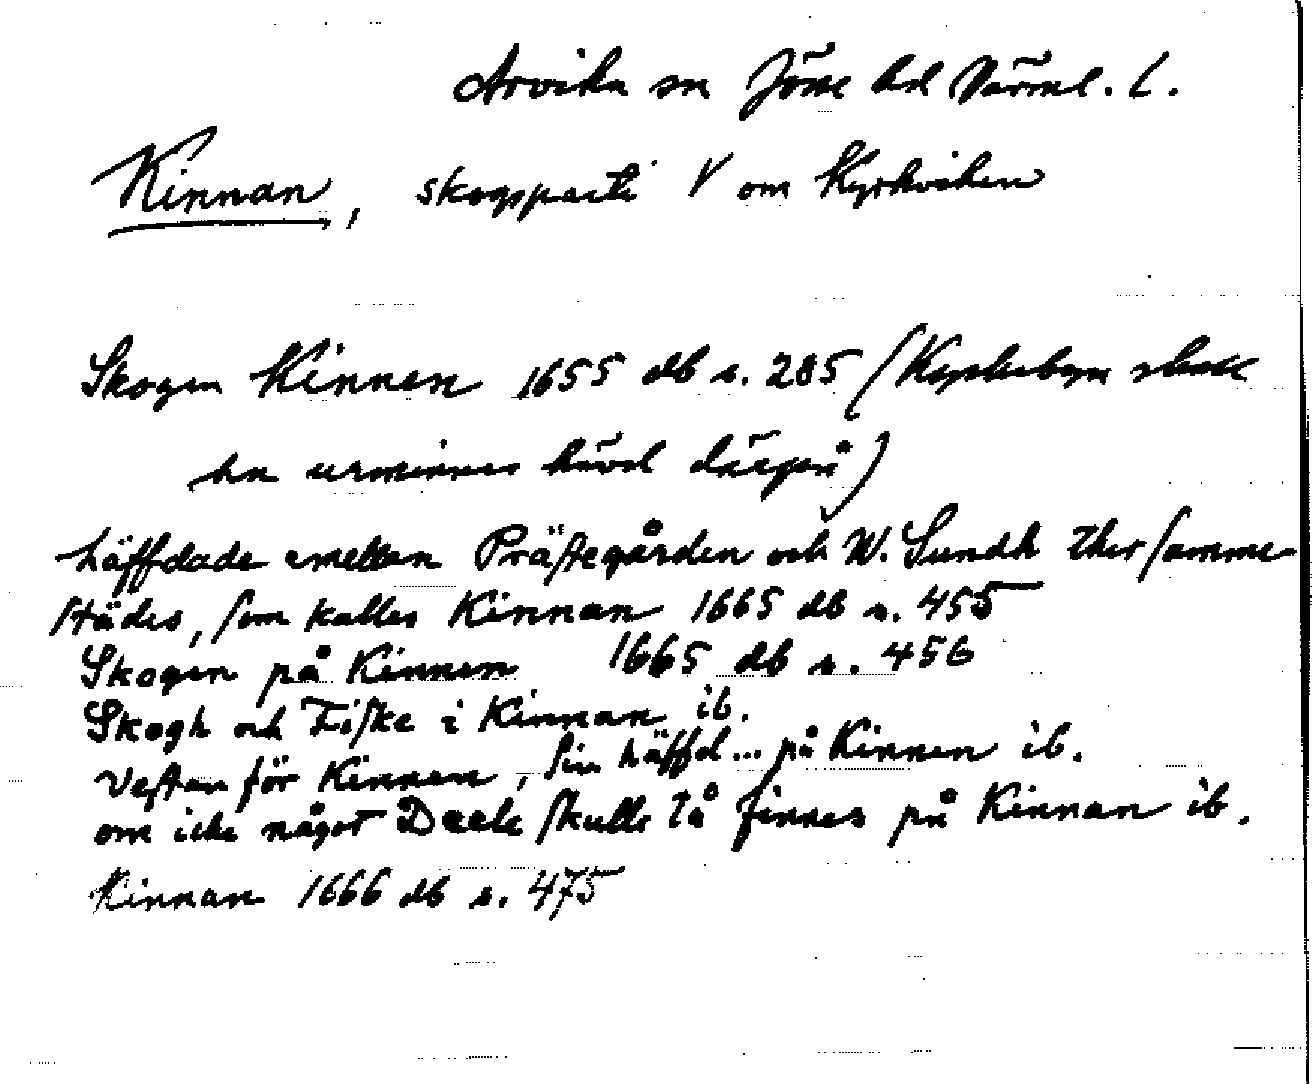 Arvika sn Jösse hd Värml. l.
Kinnan, skogsparti V om Kyrkviken
Skogen Kinnen 1655 db s. 285 (Kyrkebyn skall
ha urminnes hävd därpå)
häffdade emellan Prästegården och W. Sundh ther samme
städes, som kalles Kinnan 1665 db s. 455
Skogen på Kinnen 1665 db s. 456
Skogh och Fiske i Kinnan ib.
Vestan för Kinnan, sin häffd... på Kinnen ib.
om icke något Deele skulle tå finnes på Kinnan ib.
Kinnan 1666 db s. 475